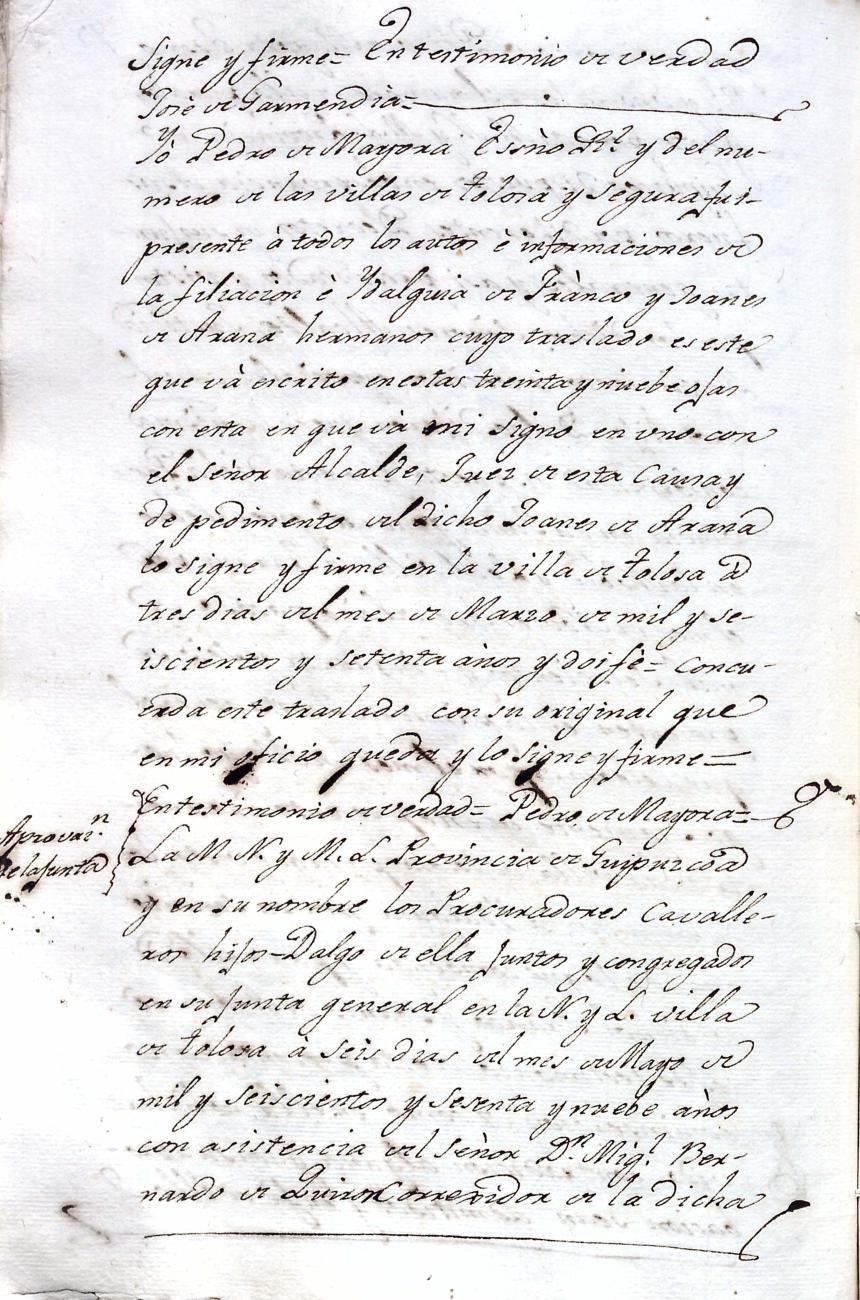 signe y firme= En testimonio de verdad
José de Garmendia=
Yò Pedro de Mayora Essño Rl. y del nu-
mero de las villas de tolosa y segura fui-
presente à todos los autos è informaciones de
la filiacion è Ydalguia de Frànco y Joanes
de Arana hermanos cuyo traslado es este
que và escrito en estas treinta y nuebe ojas
con esta en que và mi signo en vno con
el señor Alcalde, Juez de esta Causa y
de pedimento del dicho Joanes de Arana
lo signe y firme en la villa de tolosa à
tres dias del mes de Marzo de mil y se-
iscientos y setenta años y doi fe= Concu-
erda este traslado con su original que
en mi oficio queda y lo signe y firme=
En testimonio de verdad= Pedro de Mayora=
Aprovazn.
de la Junta
La M N. y M. L. Provincia de Guipuzcoa
y en su nombre los Procuradores Cavalle-
ros hijos-Dalgo de ella Juntos y congregados
en su Junta general en la N. y L. villa
de tolosa à seis dias del mes de Mayo de
mil y seiscientos y sesenta y nuebe años
con asistencia del señor Dn. Migl. Ber-
nardo de Quiros Corregidor de la dicha